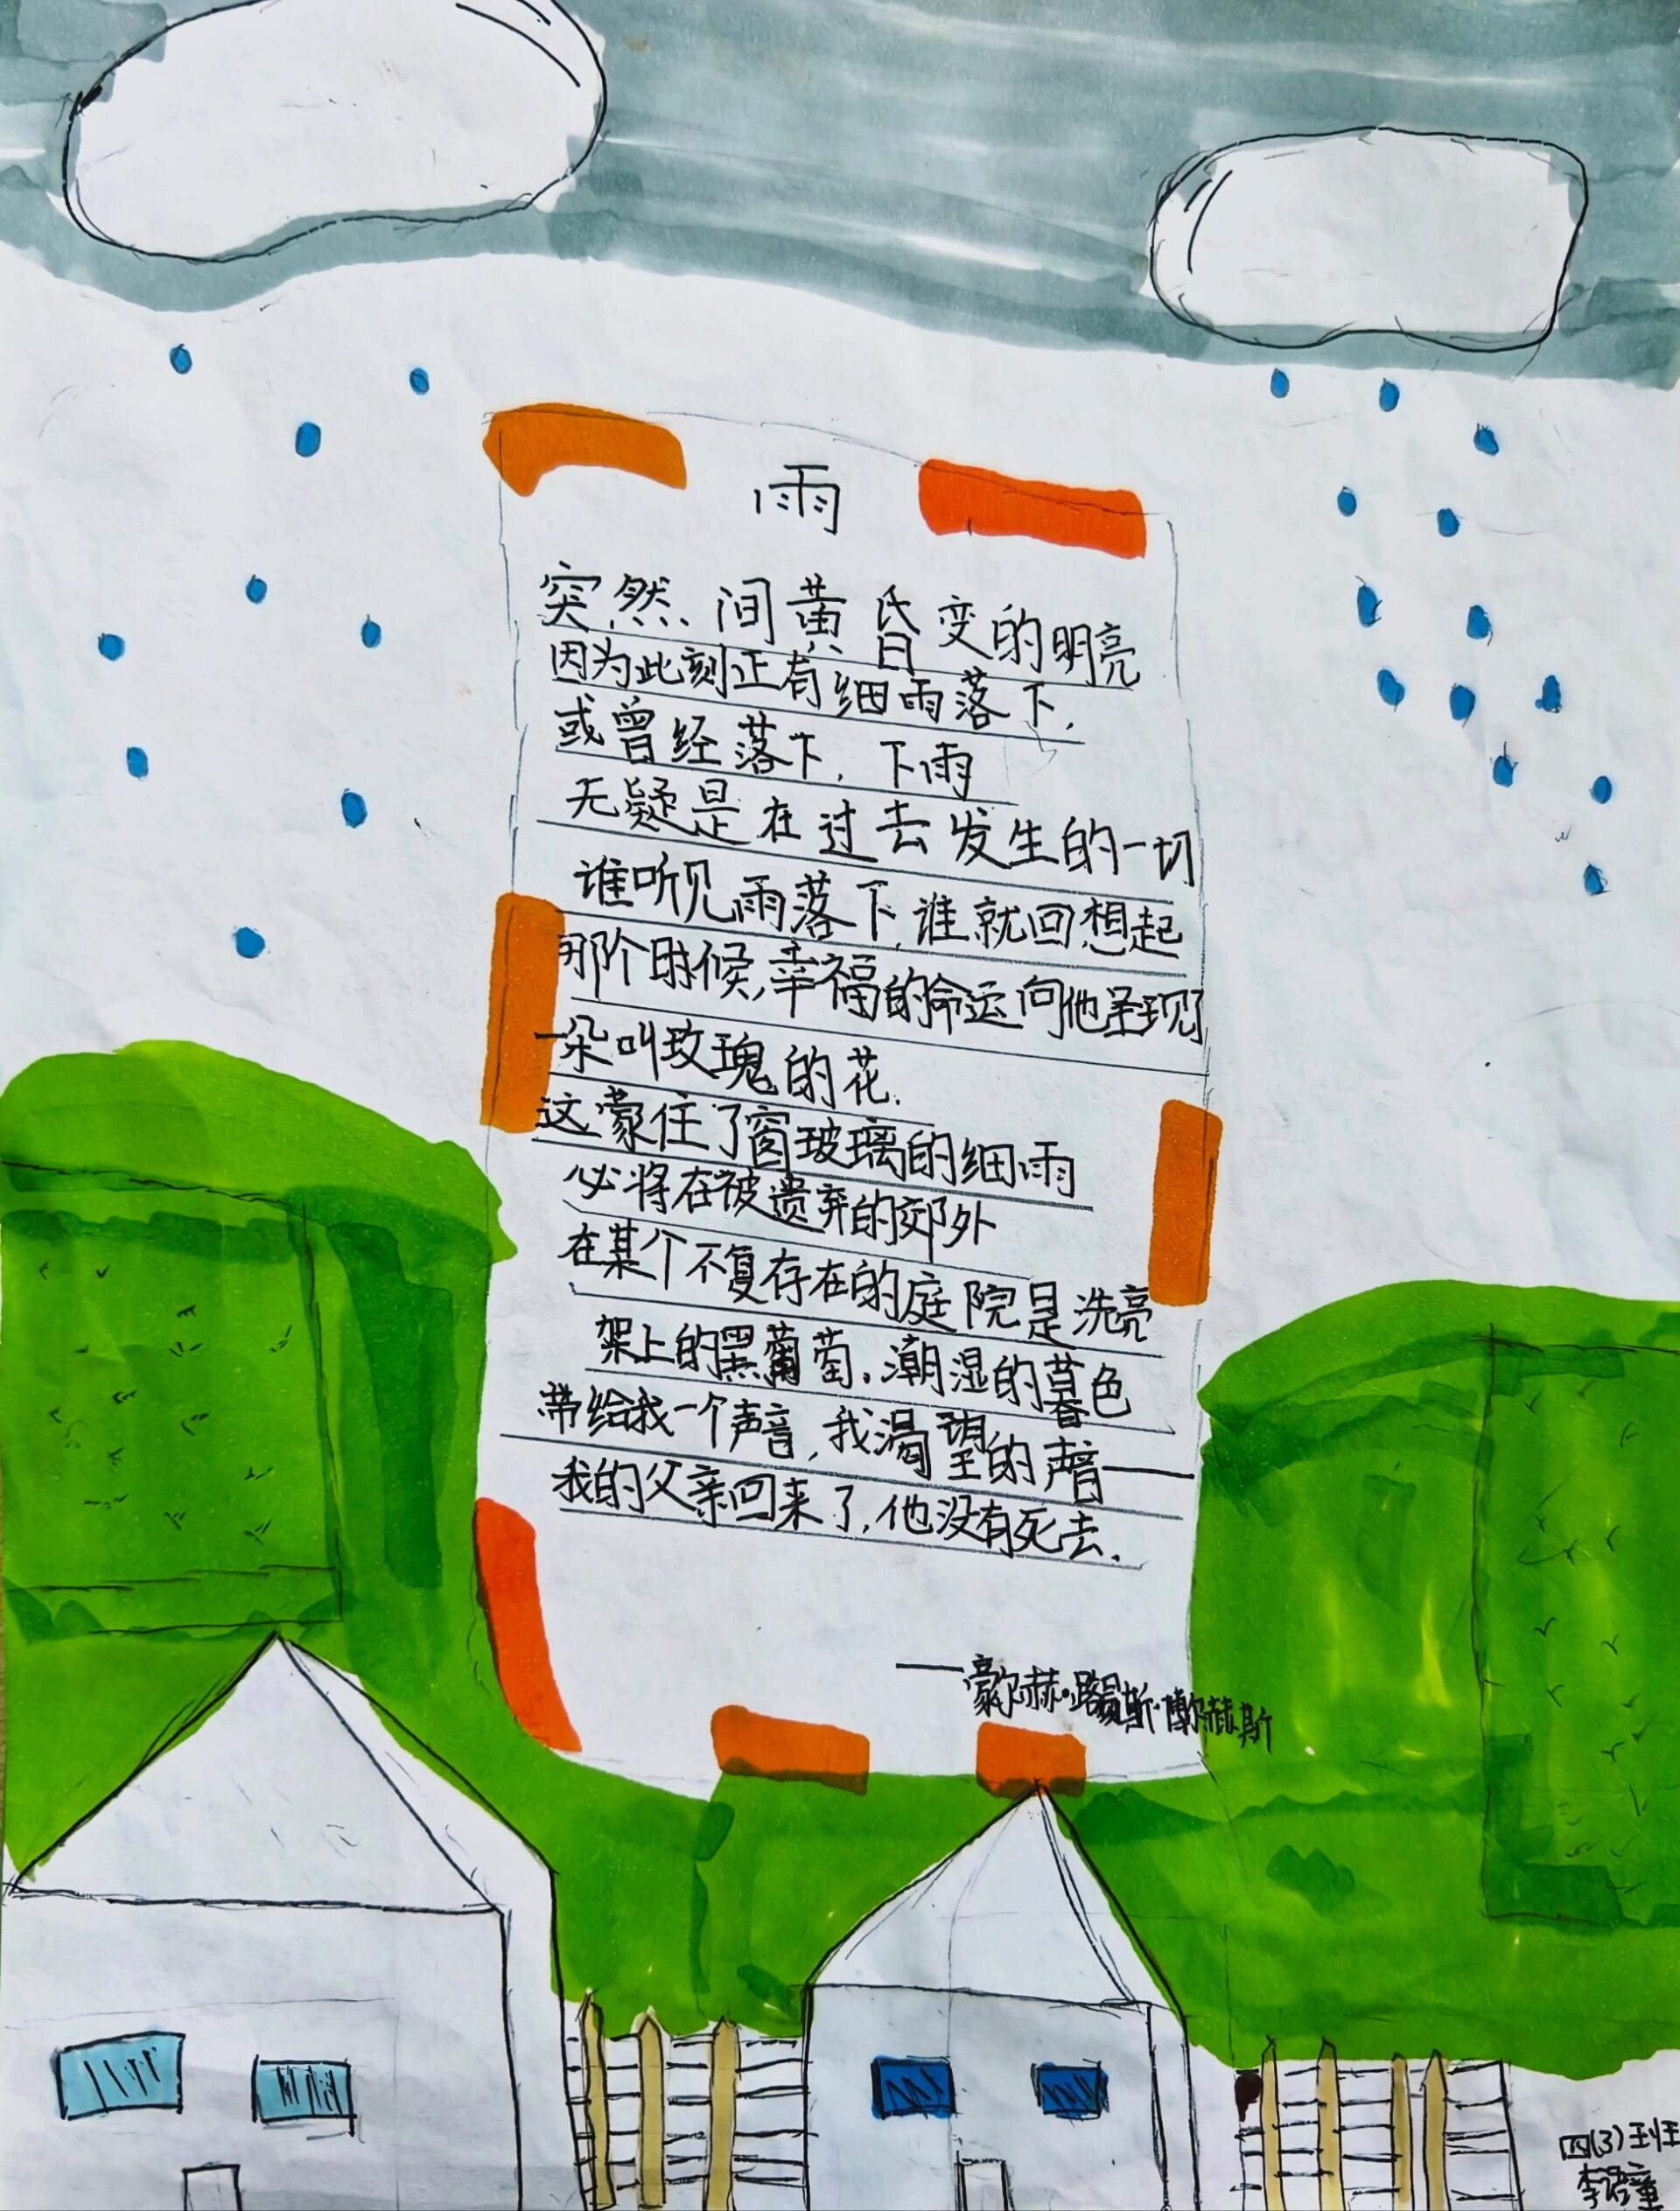 雨
突然间黄昏变的明亮
因为此刻正有细雨落下,
或曾经落下,下雨
无疑是在过去发生的一切
谁听见雨落下,谁就回想起
那个时候,幸福的命运向他呈现了
一朵叫玫瑰的花.
这蒙住了窗玻璃的细雨
必将在被遗弃的郊外
在某个不复存在的庭院是洗亮
架上的黑葡萄.潮湿的暮色
带给我一个声音,我渴望的声音——
我的父亲回来了,他没有死去.
——豪尔赫·路易斯·博尔赫斯
四(3)班
李语童